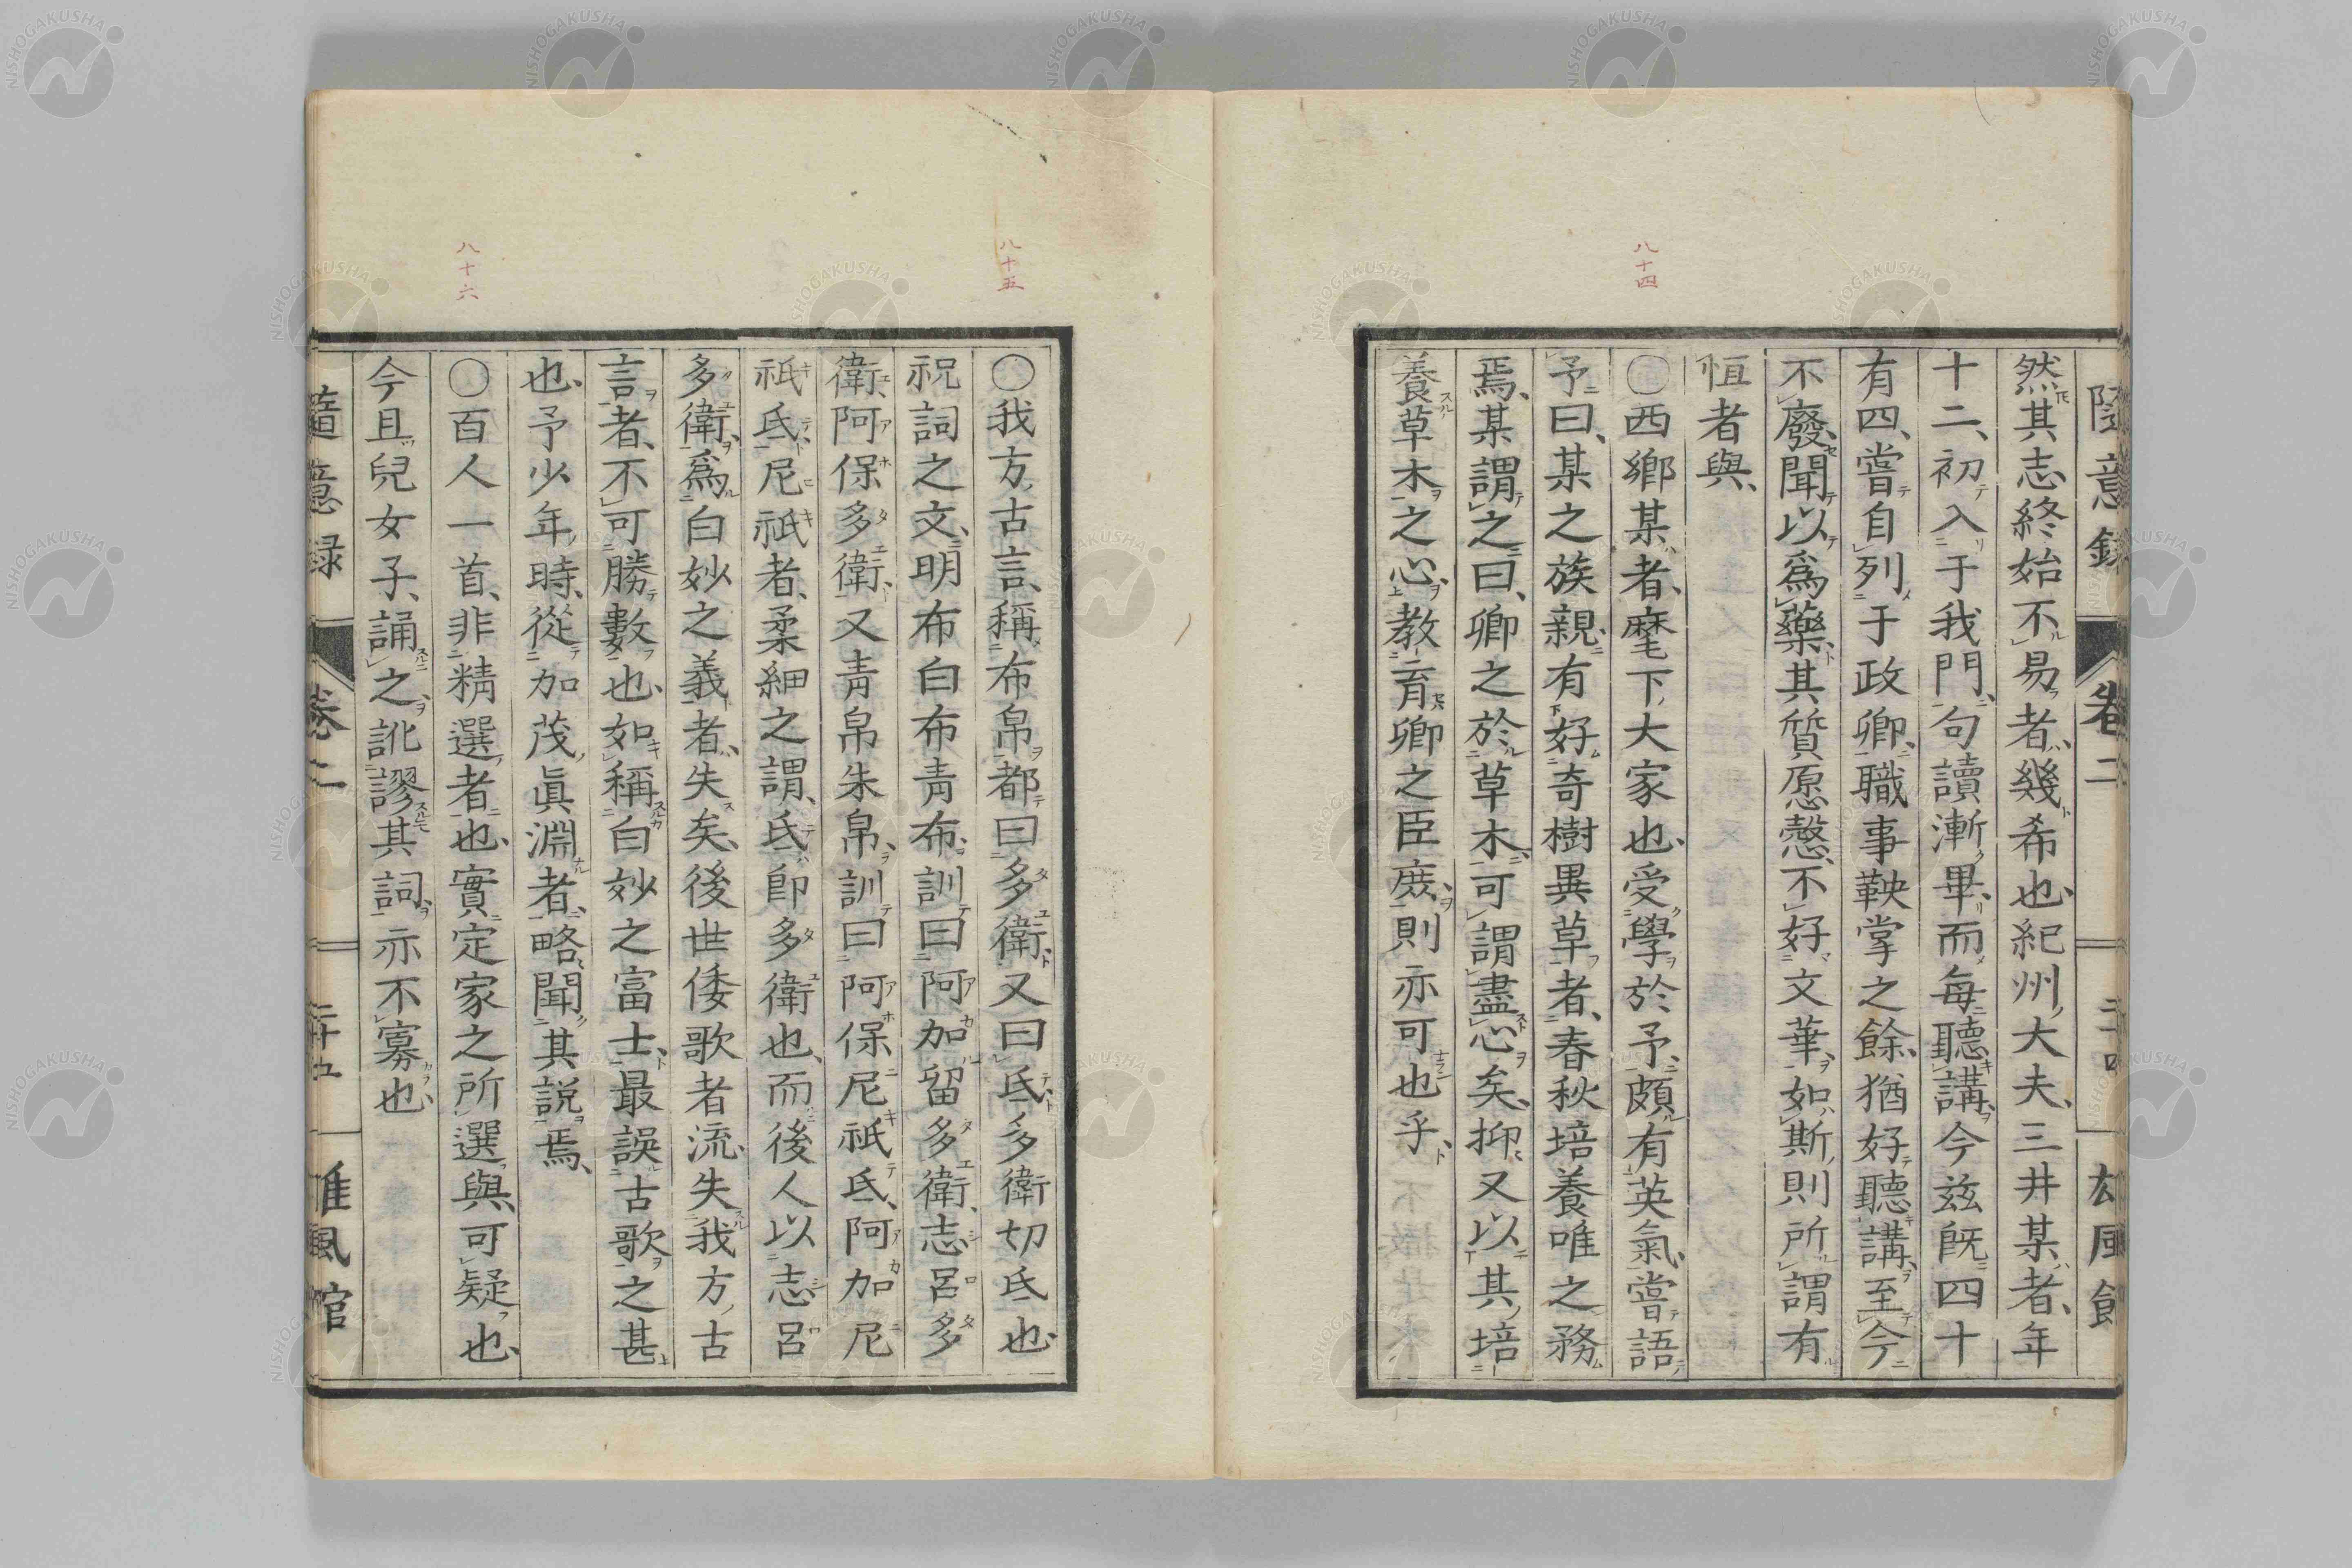 隨意錄 卷二 二十四 雄風館
然其志終始不易者幾希也紀州大夫三井某者年
十二初入于我門句讀漸畢而每聽講今茲既四十
有四嘗自列于政卿職事鞅掌之餘猶好聽講至今
不廢聞以爲藥其質愿愨不好文華如斯則所謂有
恒者與
八十四
〇西鄉某者麾下大家也受學於予頗有英氣嘗語
予曰某之族親有好奇樹異草者春秋培養唯之務
焉某謂之曰卿之於草木可謂盡心矣抑又以其培
養草木之心教育卿之臣庶則亦可也乎
八十五
〇我方古言稱布帛都曰多衛又曰氐多衛切氐也
祝詞之文明布白布靑布訓曰阿加留多衛志呂多
衛阿保多衛又靑帛朱帛訓曰阿保尼祇氐阿加尼
祇氐尼祇者柔細之謂氐卽多衛也而後人以志呂
多衛爲白妙之義者失矣後世倭歌者流失我方古
言者不可勝數也如稱白妙之富士最誤古歌之甚
也予少年時從加茂眞淵者略聞其說焉
八十六
〇百人一首非精選者也實定家之所選與可疑也
今且兒女子誦之訛謬其詞亦不寡也
隨意録 卷二 二十五 雄風館